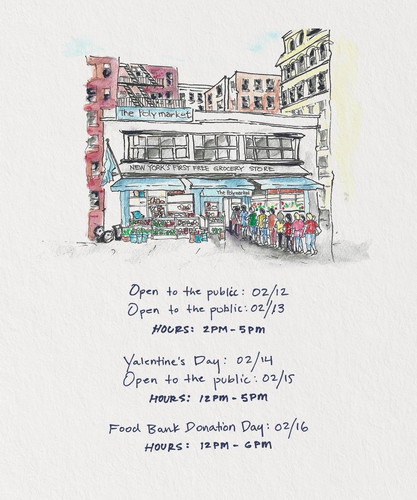 The Polymarket
NEW YORK'S FIRST FREE GROCERY STORE
The Polymarket
Open to the public: 02/12
Open to the public: 02/13
HOURS: 2PM - 5PM
Valentine's Day: 02/14
Open to the public: 02/15
HOURS: 12PM - 5PM
Food Bank Donation Day: 02/16
HOURS: 12PM - 6PM